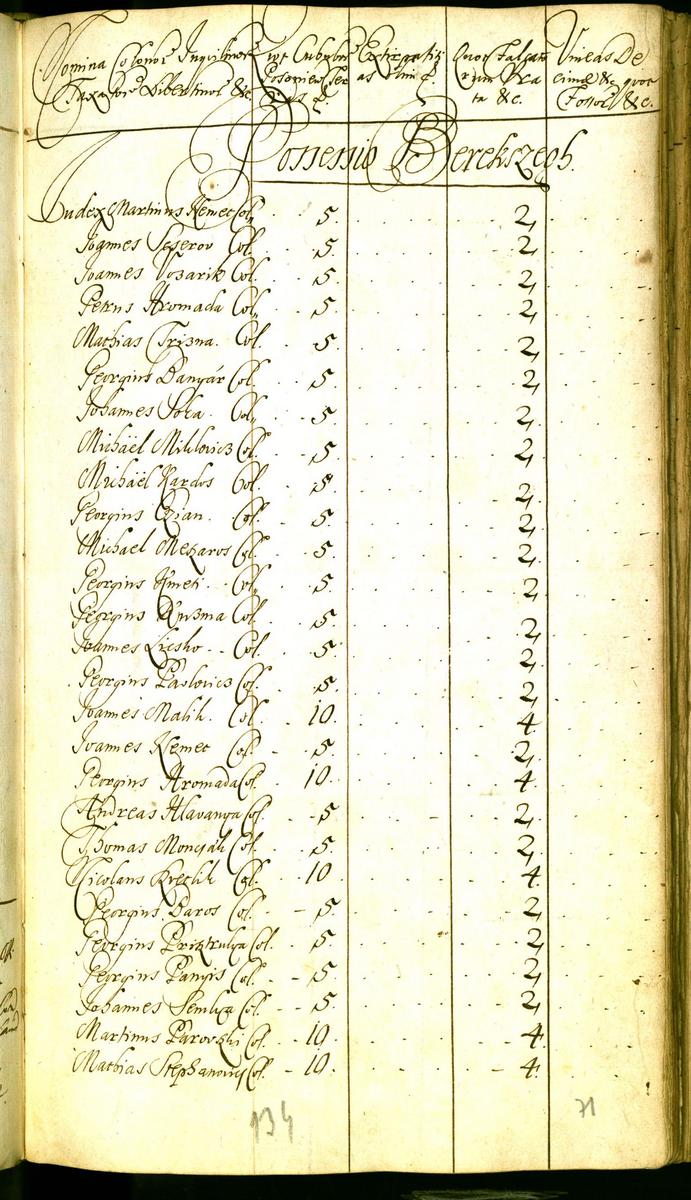 Nomina Colonor Inquilinor Taxator Libertinor &c.
Quot Cubulor Posonien Terras
Extirpatitias
Quot Falcatorum Prata &c.
Vineas Decimas &c. quot Fossor &c.
Possessio Berekszegh.
Judex Martinus Nemec Col. 5. 2,
Joannes Seserov Col. 5. 2,
Joannes Vozarik Col. 5. 2,
Petrus Hromada Col. 5. 2,
Mathias Trizna. Col. 5. 2,
Georgius Banyár Col. 5. 2,
Johannes Soka. Col. 5. 2,
Michaël Miklovicz Col. 5. 2,
Michaël Kardos Col. 5. 2,
Georgius Czian. Col. 5. 2,
Michael Mezaros Col. 5. 2,
Georgius Kmeti. Col. 5. 2,
Georgius Kuzma Col. 5. 2,
Joannes Liesko. Col. 5. 2,
Georgius Paslovicz Col. 5. 2,
Joannes Malik. Col. 10. 4,
Joannes Nemec Col. 5. 2,
Georgius Hromada Col. 10. 4,
Andreas Hlavanya Col. 5. 2,
Thomas Moncyák Col. 5. 2,
Nicolaus Kretik Col. 10. 4,
Georgius Baros Col. 5. 2,
Georgius Col. 5. 2,
Georgius Panyis Col. 5. 2,
Johannes Semka Col. 5. 2,
Martinus Parovski Col. 10. 4,
Mathias Stephanovicz Col. 10. 4,
134
71